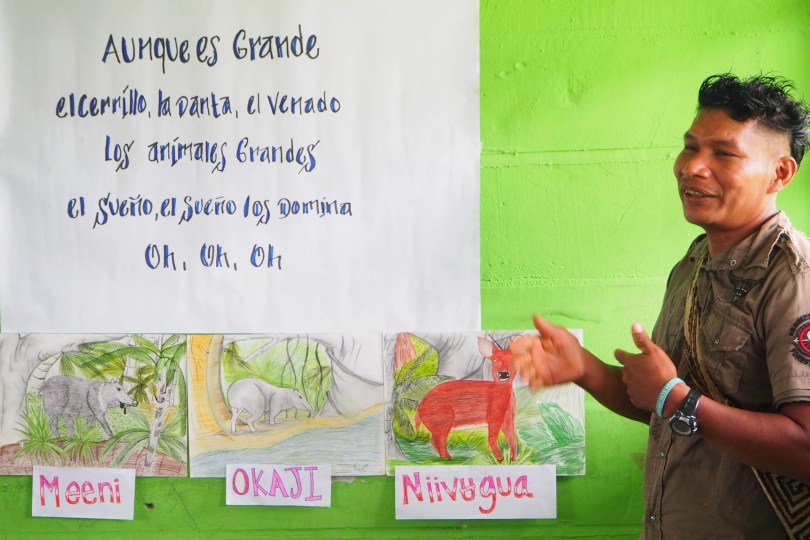 Aunque es Grande
el cerrillo, la Danta, el Venado
Los animales Grandes
el Sueño, el Sueño los Domina
Oh, Oh, Oh
Meeni
OKAJI
Niivʉgua